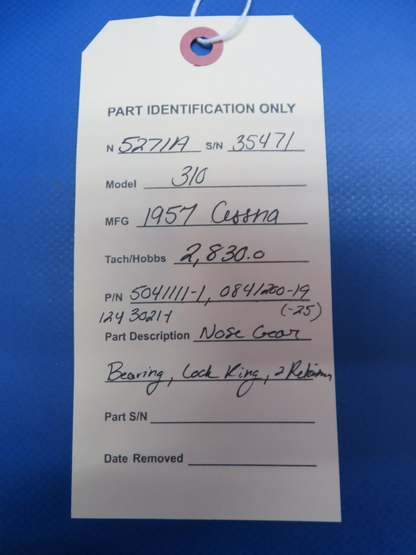 PART IDENTIFICATION ONLY
N 5271A S/N 35471
Model 310
MFG 1957 Cessna
Tach/Hobbs 2,830.0
P/N 5041111-1, 0841200-19
1243021-1 (-25)
Part Description Nose Gear
Bearing, Lock Ring, 2 Retainers
Part S/N
Date Removed